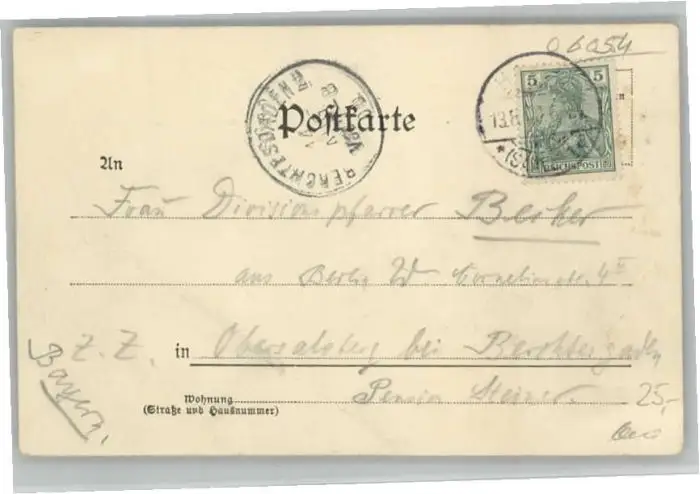 06054
5 5
REICHSPOST
13.
BERCHTESGADEN
Postkarte
An
Frau Divisionspfarrer Becker
aus Berlin W Corneliusstr. 4 II
z. Z. in Obersalzberg bei Berchtesgaden
Bayern
Wohnung Pension Steiner
(Straße und Hausnummer)
25,-